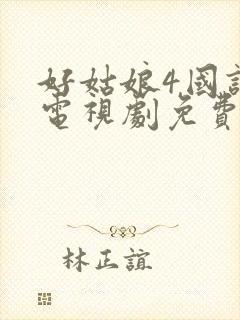 好姑娘4,國
電視劇免費
林正誼